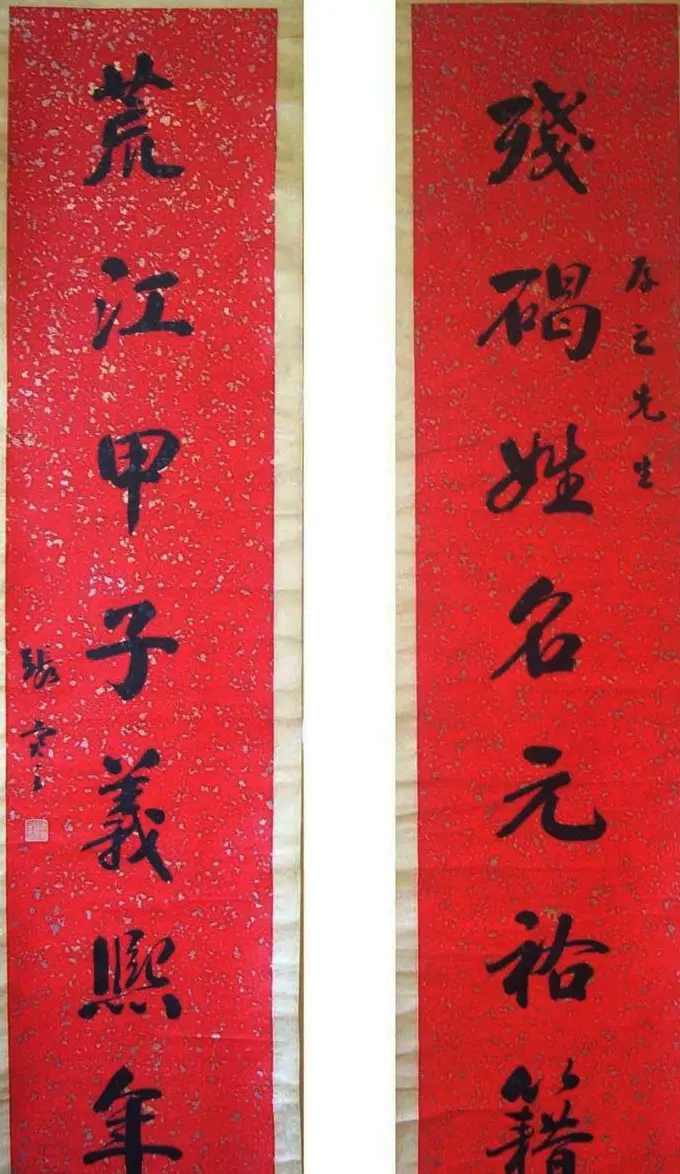 殘碣姓名元祐籍
存之先生
荒江甲子義熙年
張宗